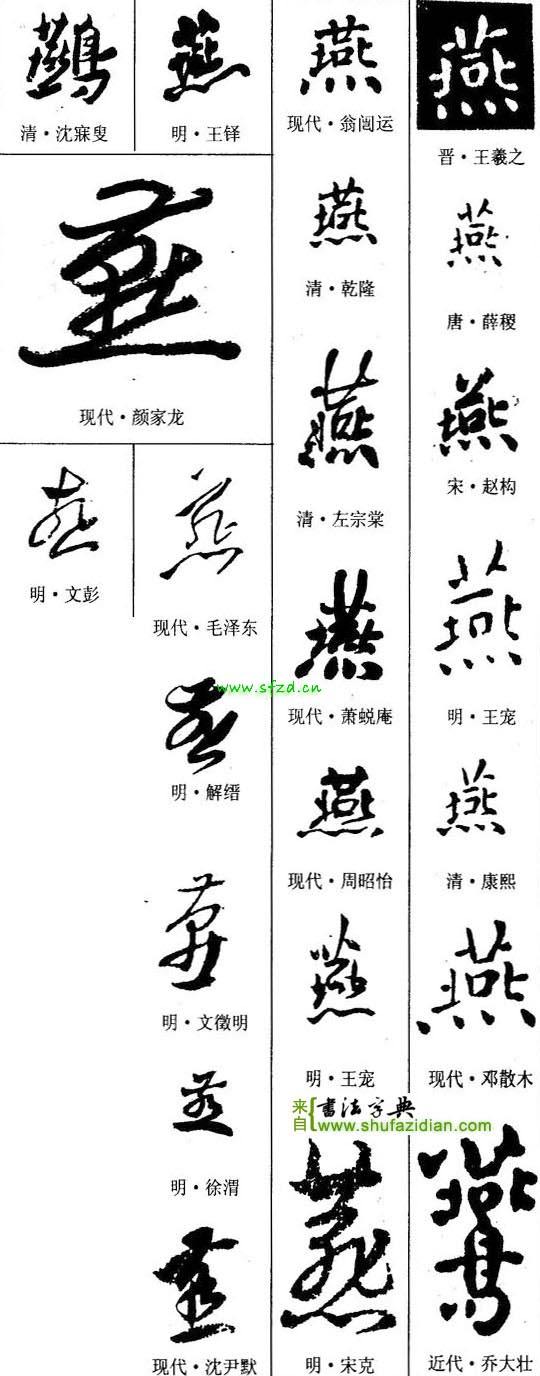 燕
晋·王羲之
燕
唐·薛稷
燕
宋·赵构
燕
明·王宠
燕
清·康熙
燕
现代·邓散木
鷰
近代·乔大壮
燕
现代·翁闿运
燕
清·乾隆
燕
清·左宗棠
燕
现代·萧蜕庵
燕
现代·周昭怡
燕
明·王宠
燕
明·宋克
燕
明·王铎
清·沈寐叟
燕
现代·颜家龙
燕
现代·毛泽东
燕
明·文彭
燕
明·解缙
燕
明·文徵明
燕
明·徐渭
燕
现代·沈尹默
www.sfzd.cn
来自{书法字典
www.shufazidian.com